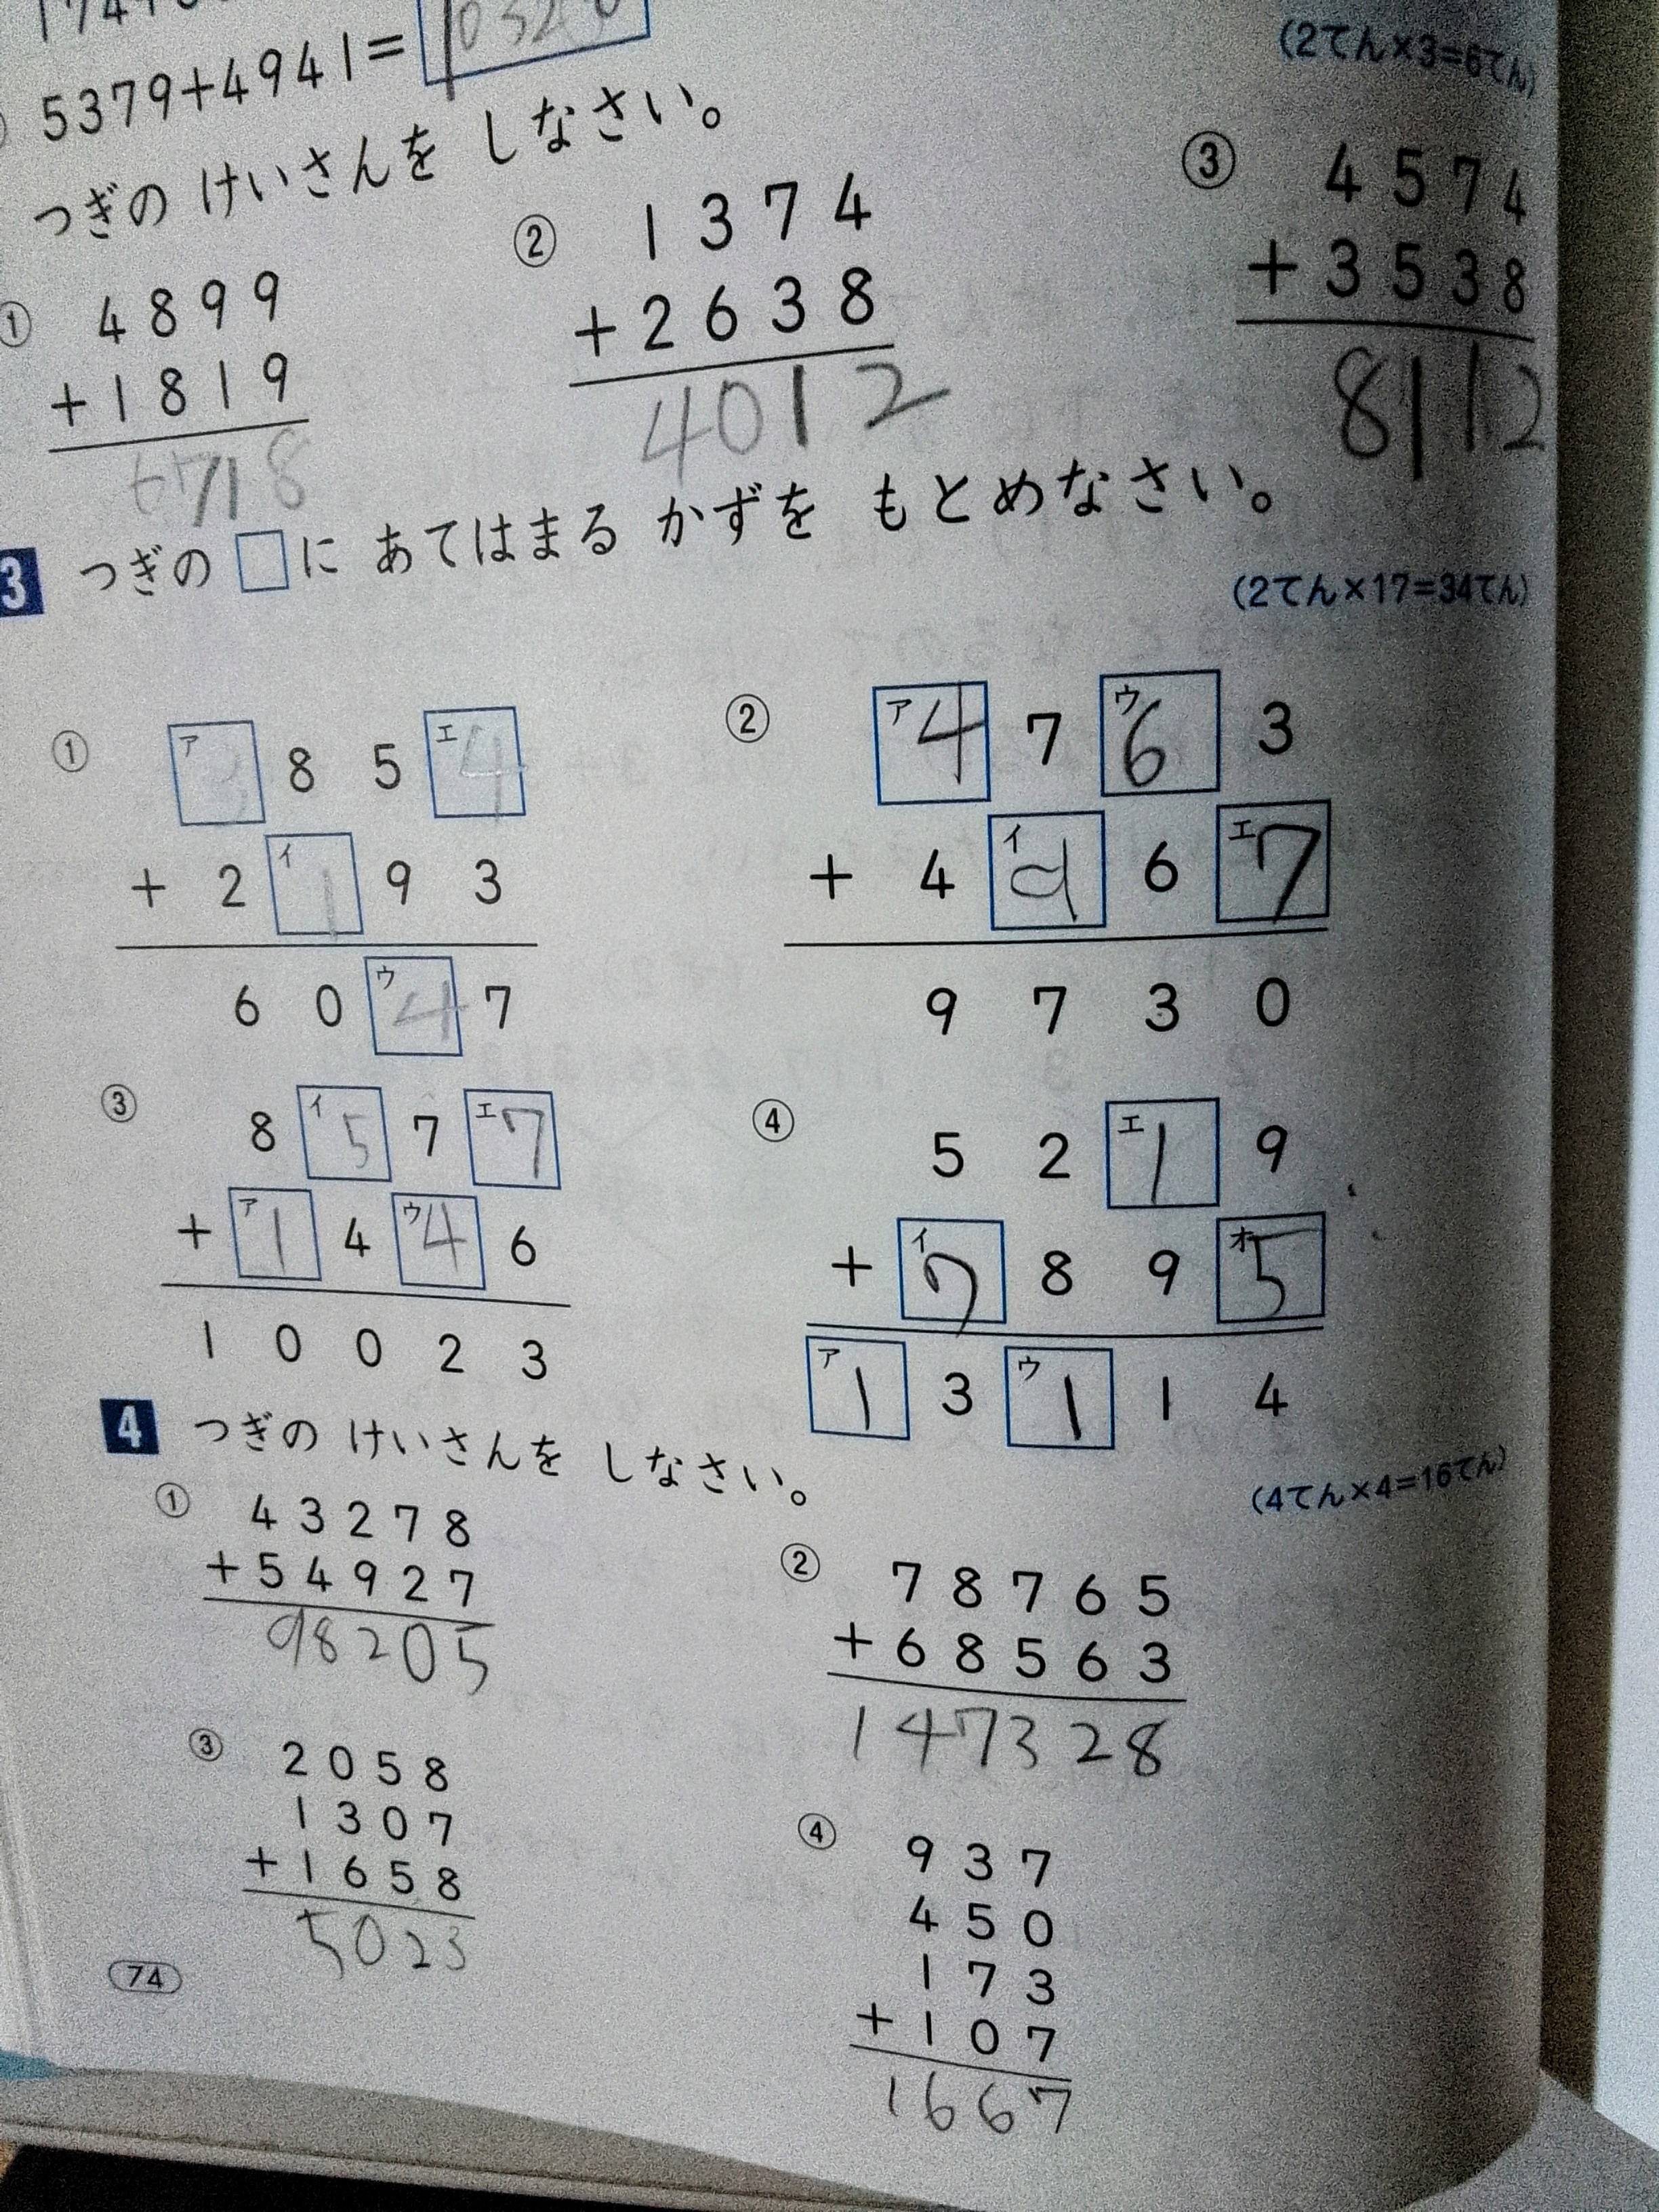 5379+4941=10320
つぎの けいさんを しなさい。
(2てん×3=6てん)
① 4899
+1819
6718
② 1374
+2638
4012
③ 4574
+3538
8112
3 つぎの □に あてはまる かずを もとめなさい。
(2てん×17=34てん)
① ア 8 5 エ4
+ 2 イ1 9 3
6 0 ウ4 7
② ア4 7 ウ6 3
+ 4 イ9 6 エ7
9 7 3 0
③ 8 イ5 7 エ7
+ ア1 4 ウ4 6
1 0 0 2 3
④ 5 2 エ1 9
+ イ7 8 9 オ5
ア1 3 ウ1 1 4
4 つぎの けいさんを しなさい。
(4てん×4=16てん)
① 43278
+54927
98205
② 78765
+68563
147328
③ 2058
1307
+1658
5023
④ 937
450
173
+107
1667
74